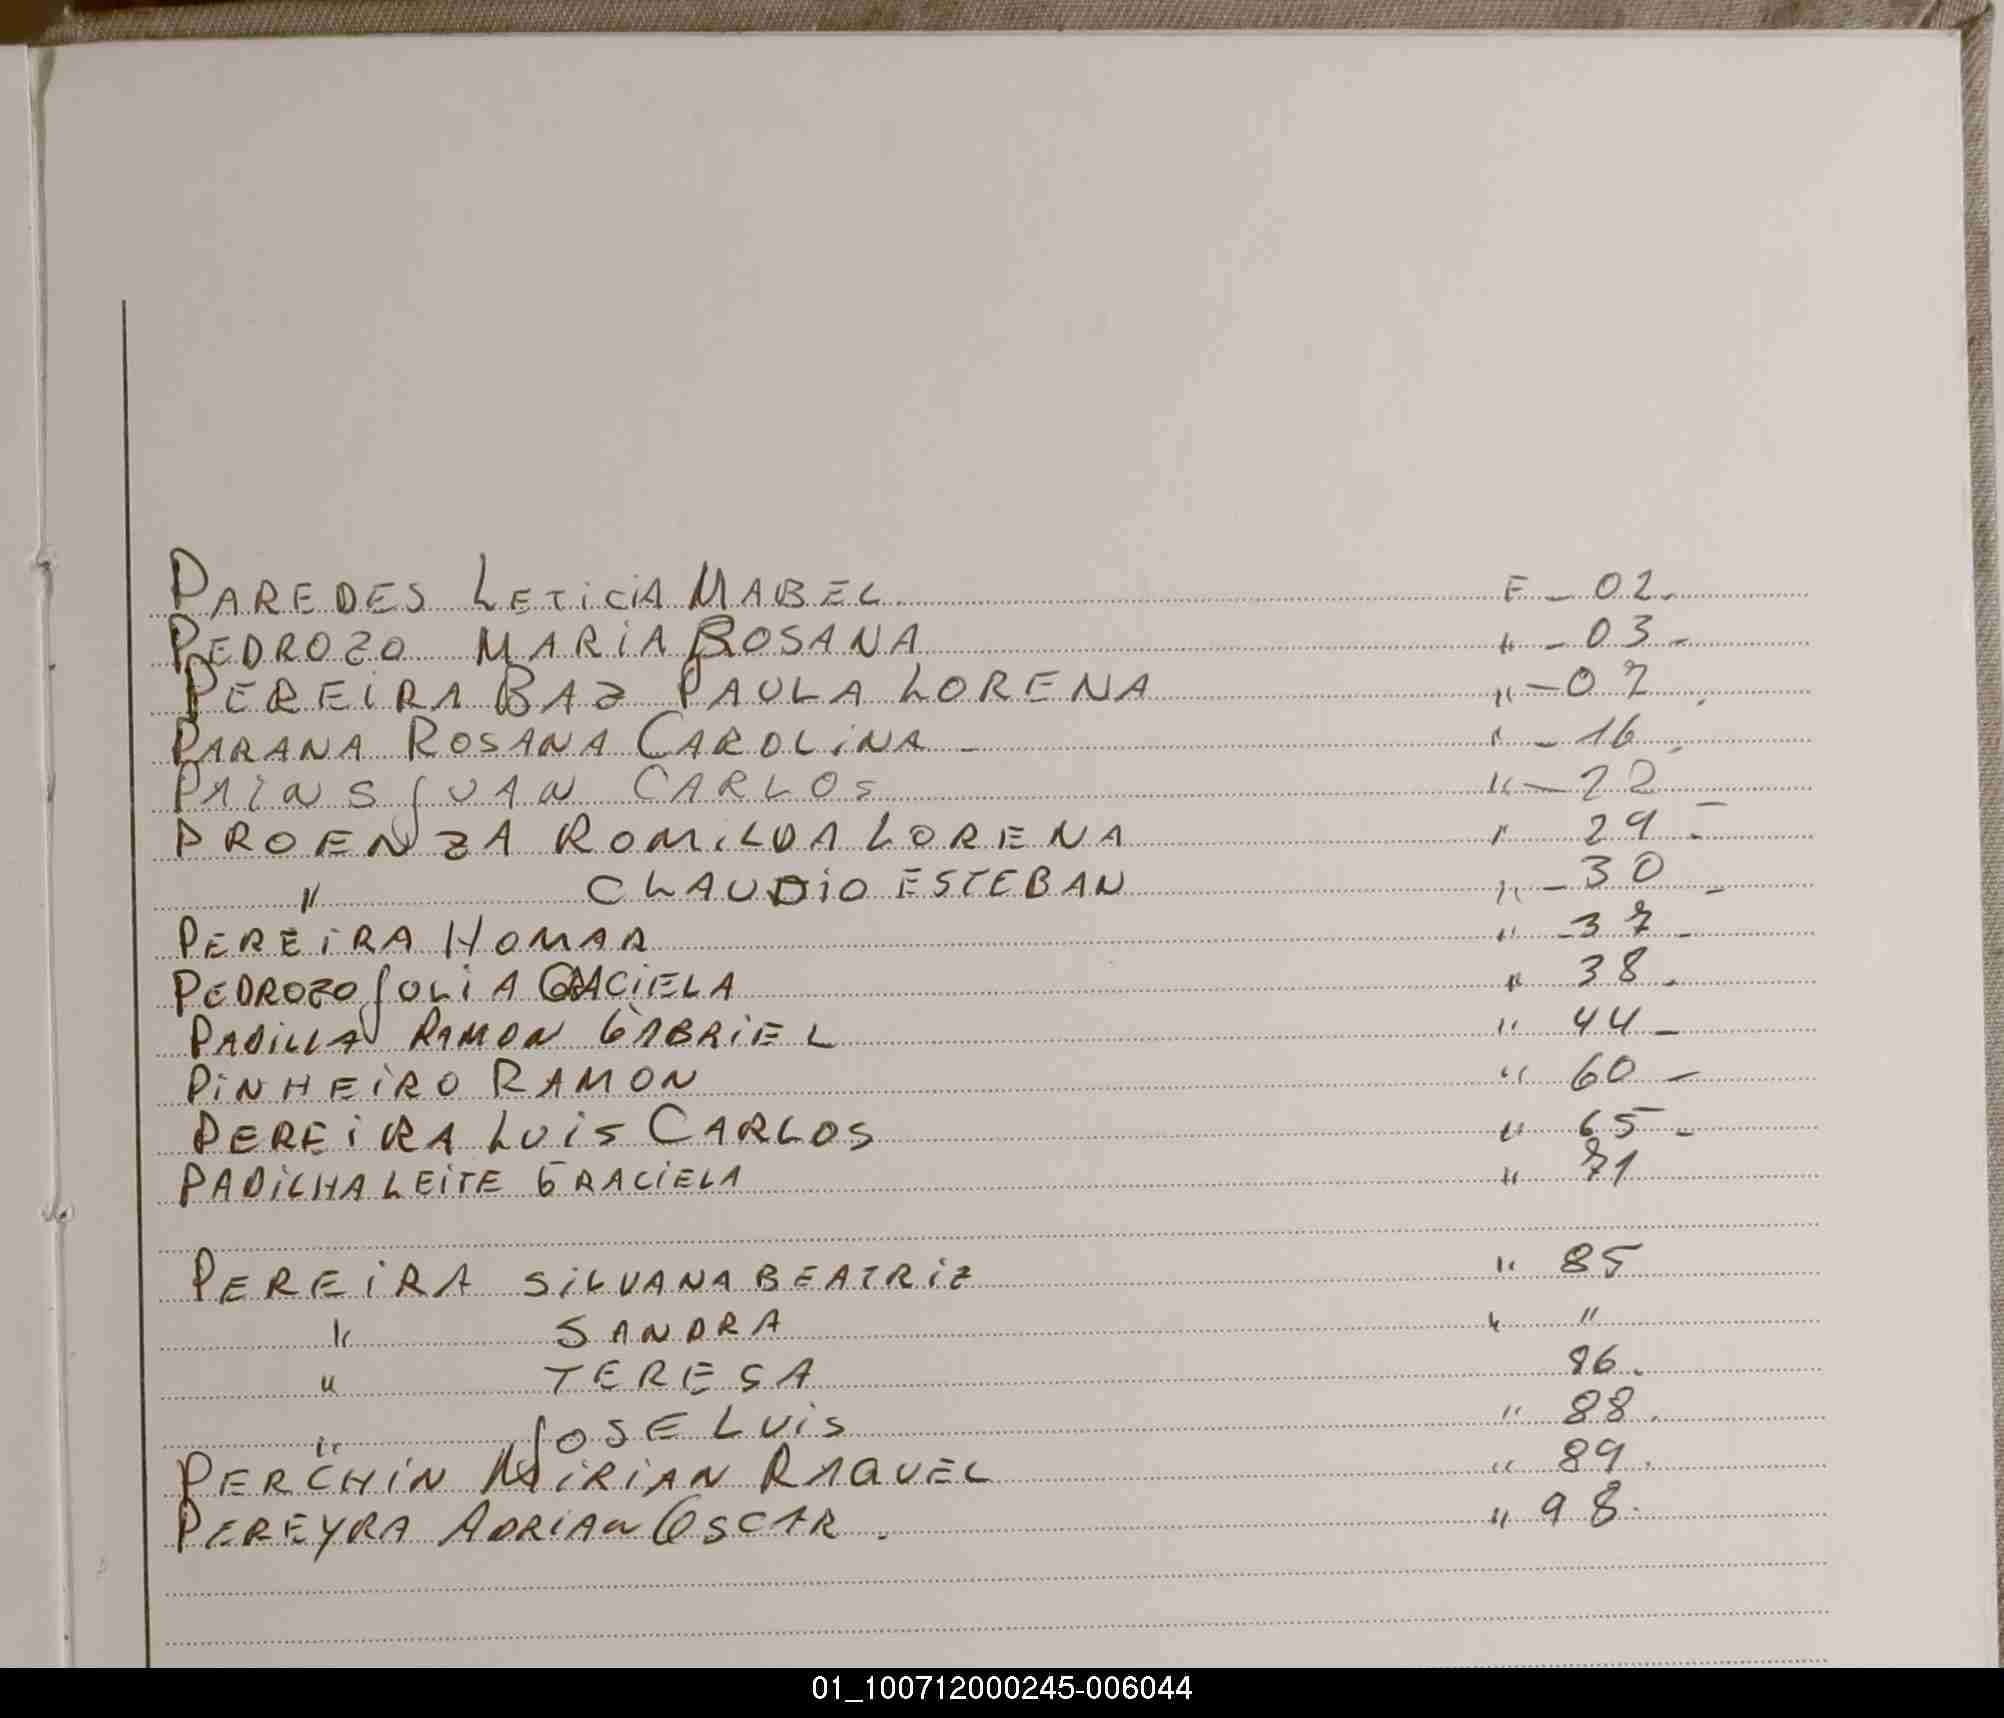 PAREDES LETICIA MABEL F - 02.
PEDROZO MARIA ROSANA " - 03 -
PEREIRA BAZ PAULA LORENA " - 07.
PARANA ROSANA CAROLINA - " - 16.
PAINS JUAN CARLOS " - 22
PROENZA ROMILDA LORENA " 29 -
" CLAUDIO ESTEBAN " - 30 -
PEREIRA HOMAR " - 37 -
PEDROZO JULIA GRACIELA " 38.
PADILLA RAMON GABRIEL " 44 -
PINHEIRO RAMON " 60 -
PEREIRA LUIS CARLOS " 65 -
PADILHA LEITE GRACIELA " 71
PEREIRA SILVANA BEATRIZ " 85
" SANDRA " "
" TERESA 86.
" JOSE LUIS " 88.
PERCHIN MIRIAN RAQUEL " 89.
PEREYRA ADRIAN OSCAR. " 98.
01_100712000245-006044